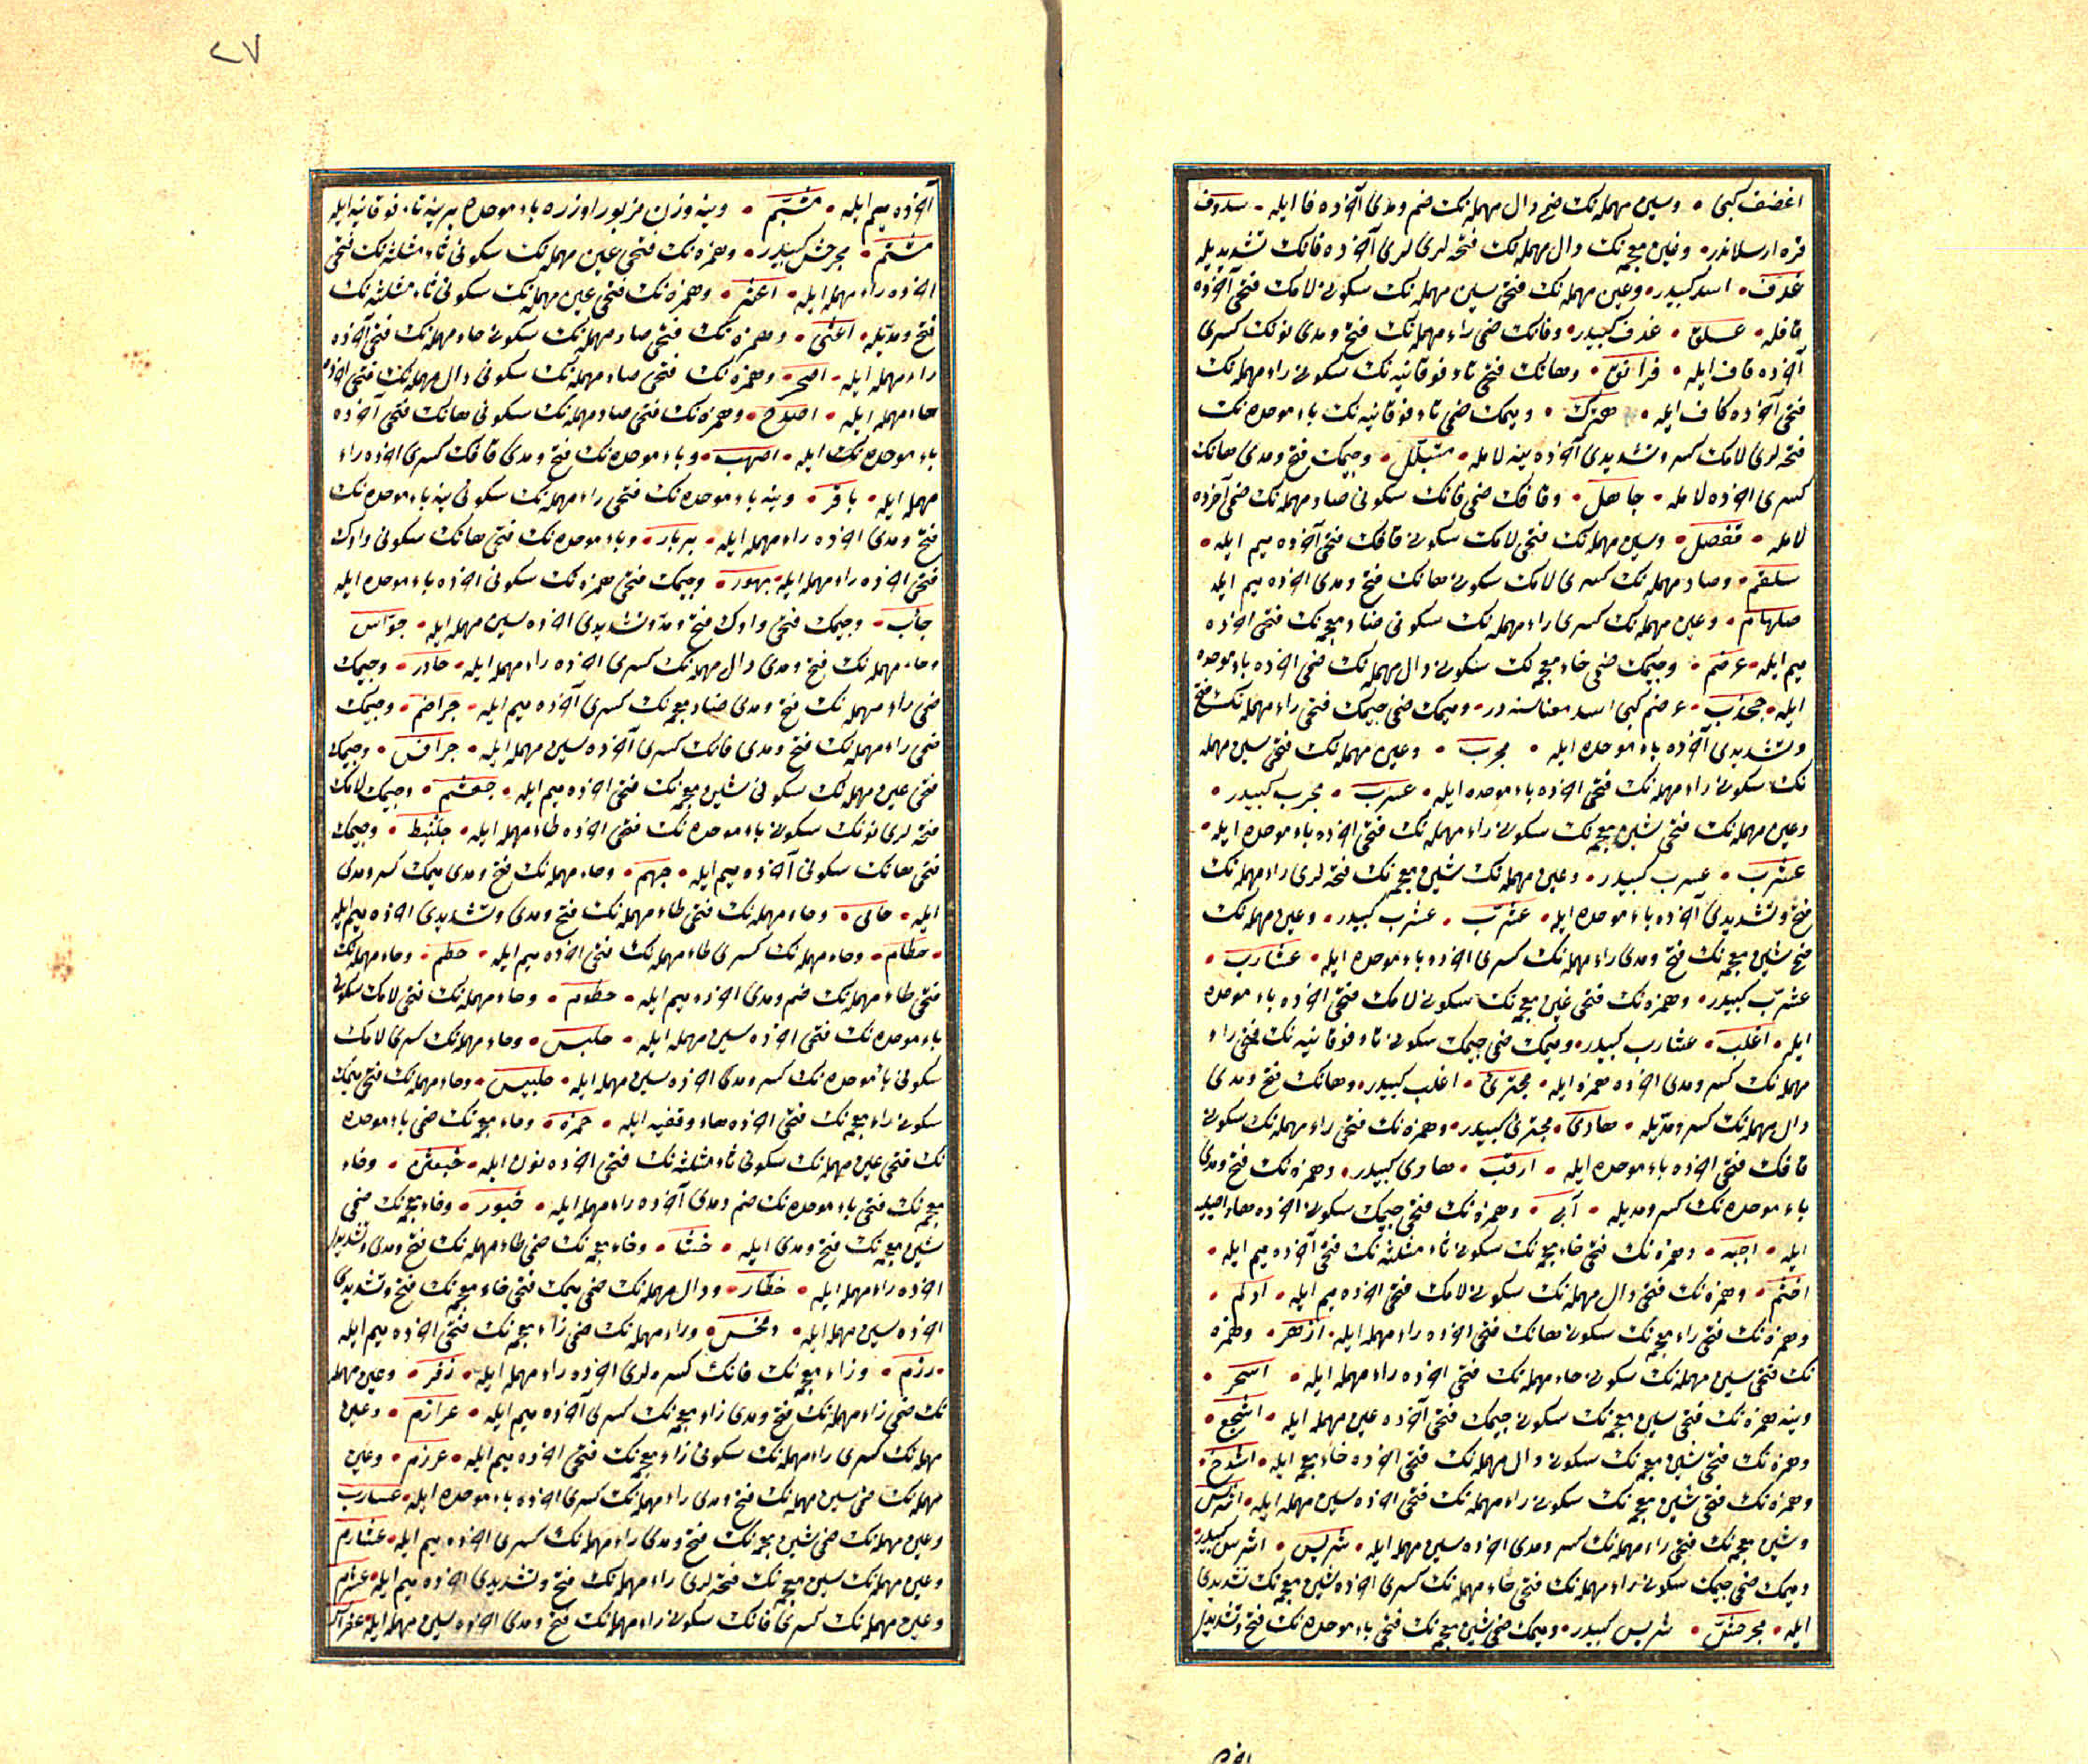 اغضف كبى • وسين مهمله نك ضم دال مهمله نك ضم ومدى آخرده فا ايله • سدوف
قره ارسلاندر • وغين معجمه نك دال مهمله نك فتحه لرى آخرده فانك تشديديله
غدف • اسد كبيدر • وعين مهمله نك فتحى سين مهمله نك سكونى لامك فتحى آخرده
قافله • عسلق • غدف كبيدر • وفانك ضمى راء مهمله نك فتح ومدى نونك كسرى
آخرده قاف ايله • فرانق • وهانك فتحى تاء فوقانيه نك سكونى راء مهمله نك
فتحى آخرده كاف ايله • هترك • وميمك ضمى تاء فوقانيه نك باء موحده نك
فتحه لرى لامك كسر وتشديدى آخرده ينه لامله • متبلل • وجيمك فتح ومدى هانك
كسرى اخرده لامله • جاهل • وقافك ضمى فانك سكونى صاد مهمله نك ضمى آخرده
لامله • قفصل • وسين مهمله نك فتحى لامك سكونى قافك فتحى آخرده ميم ايله •
سلقم • وصاد مهمله نك كسرى لامك سكونى هانك فتح ومدى اخرده ميم ايله
صلهام • وعين مهمله نك كسرى راء مهمله نك سكونى ضاد معجمه نك فتحى اخرده
ميم ايله • عرضم • وجيمك ضمى خاء معجمه نك سكونى دال مهمله نك ضمى اخرده باء موحده
ايله • جخدب • عرضم كبى اسد معناسنه در • وميمك ضمى جيمك فتحى راء مهمله نك فتح
وتشديدى آخرده باء موحده ايله • مجرب • وعين مهمله نك فتحى سين مهمله
نك سكونى راء مهمله نك فتحى اخرده باء موحده ايله • عسرب • مجرب كبيدر •
وعين مهمله نك فتحى شين معجمه نك سكونى راء مهمله نك فتحى اخرده باء موحده ايله •
عشرب • عسرب كبيدر • وعين مهمله نك شين معجمه نك فتحه لرى راء مهمله نك
فتح وتشديدى آخرده باء موحده ايله • عشرب • عشرب كبيدر • وعين مهمله نك
ضم شين معجمه نك فتح ومدى راء مهمله نك كسرى اخرده باء موحده ايله • عشارب •
عشرب كبيدر • وهمزه نك فتحى غين معجمه نك سكونى لامك فتحى اخرده باء موحده
ايله • اغلب • عشارب كبيدر • وميمك ضمى جيمك سكونى تاء فوقانيه نك فتحى راء
مهمله نك كسر ومدى اخرده همزه ايله • مجترئ • اغلب كبيدر • وهانك فتح ومدى
دال مهمله نك كسر ومديله • هادى • مجترئ كبيدر • وهمزه نك فتحى راء مهمله نك سكونى
قافك فتحى اخرده باء موحده ايله • ارقب • هادى كبيدر • وهمزه نك فتح ومدى
باء موحده نك كسر ومديله • آبى • وهمزه نك فتحى جيمك سكونى اخرده هاء اصليه
ايله • اجبه • وهمزه نك فتحى خاء معجمه نك سكونى ثاء مثلثه نك فتحى آخرده ميم ايله •
اخثم • وهمزه نك فتحى دال مهمله نك سكونى لامك فتحى اخرده ميم ايله • ادلم •
وهمزه نك فتحى زاء معجمه نك سكونى هانك فتحى اخرده راء مهمله ايله • ازهر • وهمزه
نك فتحى سين مهمله نك سكونى حاء مهمله نك فتحى اخرده راء مهمله ايله • اسحر •
وينه همزه نك فتحى شين معجمه نك سكونى جيمك فتحى آخرده عين مهمله ايله • اشجع •
وهمزه نك فتحى شين معجمه نك سكونى دال مهمله نك فتحى اخرده خاء معجمه ايله • اشدخ •
وهمزه نك فتحى شين معجمه نك سكونى راء مهمله نك فتحى اخرده سين مهمله ايله • اشرس
وشين معجمه نك فتحى راء مهمله نك كسر ومدى اخرده سين مهمله ايله • شريس • اشرس كبيدر
وميمك ضمى جيمك سكونى راء مهمله نك فتحى حاء مهمله نك كسرى اخرده شين معجمه نك تشديدى
ايله • مجرحش • شريس كبيدر • وميمك ضمى شين معجمه نك فتحى باء موحده نك فتح وتشديدى
٢٧
آخرده ميم ايله • مشبم • وينه وزن مزبور اوزره باء موحده يرينه تاء فوقانيه ايله
مشتم • مجرحش كبيدر • وهمزه نك فتحى عين مهمله نك سكونى ثاء مثلثه نك فتحى
اخرده راء مهمله ايله • اعثر • وهمزه نك فتحى عين مهمله نك سكونى ثاء مثلثه نك
فتح ومديله • اعثى • وهمزه نك فتحى صاد مهمله نك سكونى حاء مهمله نك فتحى آخرده
راء مهمله ايله • اصحر • وهمزه نك فتحى صاد مهمله نك سكونى دال مهمله نك فتحى اخرده
حاء مهمله ايله • اصدح • وهمزه نك فتحى صاد مهمله نك سكونى هانك فتحى آخرده
باء موحده نك ايله • اصهب • وباء موحده نك فتح ومدى قافك كسرى اخرده راء
مهمله ايله • باقر • وينه باء موحده نك فتحى راء مهمله نك سكونى ينه باء موحده نك
فتح ومدى اخرده راء مهمله ايله • بربار • وباء موحده نك فتحى هانك سكونى واوك
فتحى اخرده راء مهمله ايله • بهور • وجيمك فتحى همزه نك سكونى اخرده باء موحده ايله
جأب • وجيمك فتحى واوك فتح ومد وتشديدى اخرده سين مهمله ايله • جواس
وحاء مهمله نك فتح ومدى دال مهمله نك كسرى اخرده راء مهمله ايله • حادر • وجيمك
ضمى راء مهمله نك فتح ومدى ضاد معجمه نك كسرى آخرده ميم ايله • جراضم • وجيمك
ضمى راء مهمله نك فتح ومدى فانك كسرى آخرده سين مهمله ايله • جرافس • وجيمك
فتحى عين مهمله نك سكونى شين معجمه نك فتحى اخرده ميم ايله • جعشم • وجيمك لامك
فتحه لرى نونك سكونى باء موحده نك فتحى اخرده طاء مهمله ايله • جلنبط • وجيمك
فتحى هانك سكونى آخرده ميم ايله • جهم • وحاء مهمله نك فتح ومدى ميمك كسر ومدى
ايله • حامى • وحاء مهمله نك فتحى طاء مهمله نك فتح ومدى وتشديدى اخرده ميم ايله
• حطام • وحاء مهمله نك كسرى طاء مهمله نك فتحى اخرده ميم ايله • حطم • وحاء مهمله نك
فتحى طاء مهمله نك ضم ومدى اخرده ميم ايله • حطوم • وحاء مهمله نك فتحى لامك سكونى
باء موحده نك فتحى اخرده سين مهمله ايله • حلبس • وحاء مهمله نك كسرى لامك
سكونى باء موحده نك كسر ومدى اخرده سين مهمله ايله • حلبيس • وحاء مهمله نك فتحى ميمك
سكونى زاء معجمه نك فتحى اخرده هاء وقفيه ايله • حمزه • وخاء معجمه نك ضمى باء موحده
نك فتحى عين مهمله نك سكونى ثاء مثلثه نك فتحى اخرده نون ايله • خبعثن • وخاء
معجمه نك فتحى باء موحده نك ضم ومدى آخرده راء مهمله ايله • خبور • وخاء معجمه نك ضمى
شين معجمه نك فتح ومدى ايله • خشا • وخاء معجمه نك ضمى طاء مهمله نك فتح ومدى وتشديدى
اخرده راء مهمله ايله • خطار • ودال مهمله نك ضمى ميمك فتحى خاء معجمه نك فتح وتشديدى
اخرده سين مهمله ايله • دمخس • وراء مهمله نك ضمى زاء معجمه نك فتحى اخرده ميم ايله
• رزم • وزاء معجمه نك فانك كسره لرى اخرده راء مهمله ايله • زفر • وعين مهمله
نك ضمى راء مهمله نك فتح ومدى زاء معجمه نك كسرى آخرده ميم ايله • عرازم • وعين
مهمله نك كسرى راء مهمله نك سكونى زاء معجمه نك فتحى اخرده ميم ايله • عرزم • وعين
مهمله نك ضمى سين مهمله نك فتح ومدى راء مهمله نك كسرى اخرده باء موحده ايله • عسارب
وعين مهمله نك ضمى شين معجمه نك فتح ومدى راء مهمله نك كسرى اخرده ميم ايله • عشارم
وعين مهمله نك شين معجمه نك فتحه لرى راء مهمله نك فتح وتشديدى اخرده ميم ايله • عشرم
وعين مهمله نك كسرى فانك سكونى راء مهمله نك فتح ومدى اخرده سين مهمله ايله • عفراس